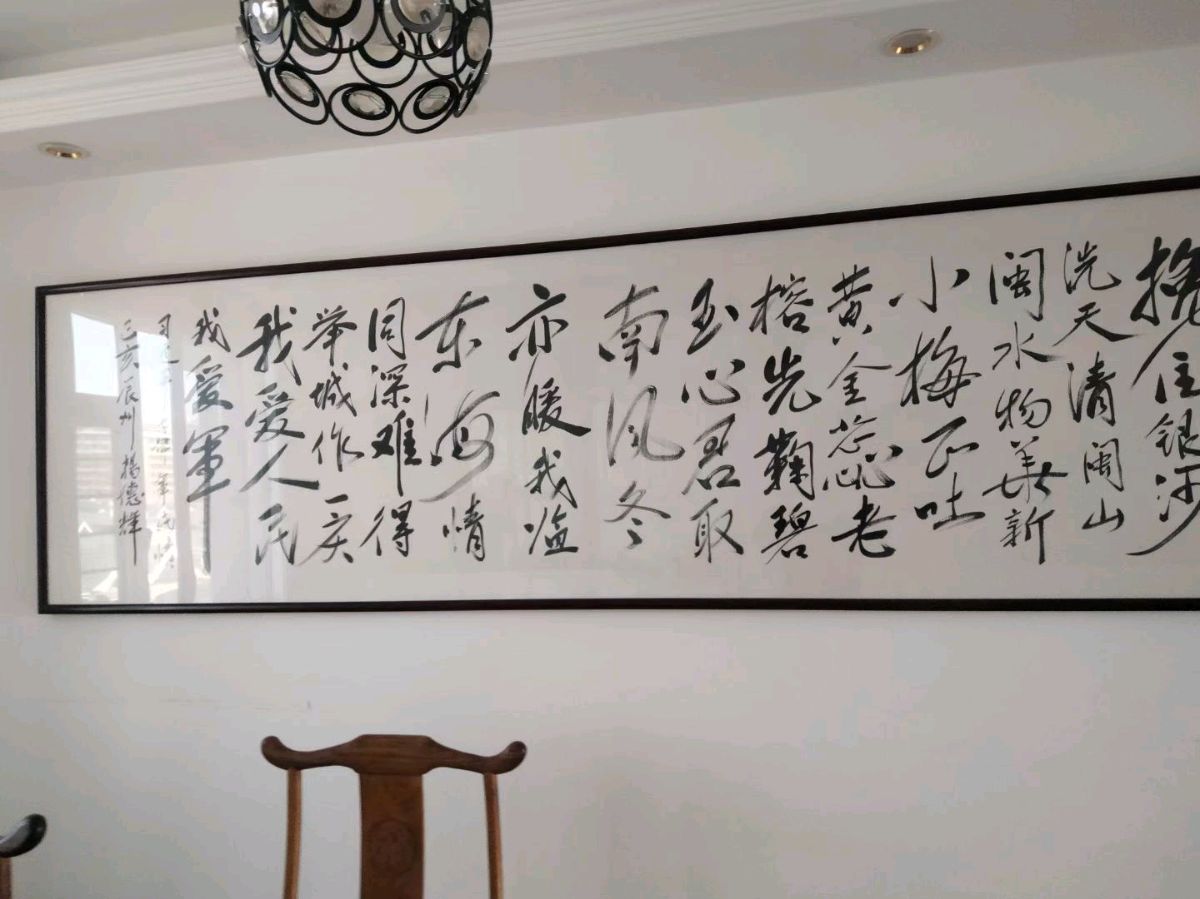 挽住银河
洗天清闽山
闽水物华新
小梅正吐
黄金蕊老
榕先鞠碧
玉心君取
南风冬
亦暖我滥
东海情
同深难得
举城作一庆
我爱人民
我爱军
辰州杨德辉